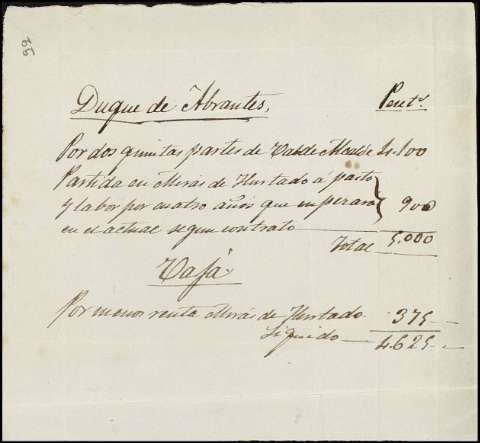 Duque de Abrantes, Pesets
Por dos quintas partes de Valde 4.100
Partida en Miras de Hurtado á pasto
y labor por cuatro años que emperara 900
en el actual segun contrato
Total 5.000
Vaja
Por menor renta Mira de Hurtado 375
Liquido 4.625